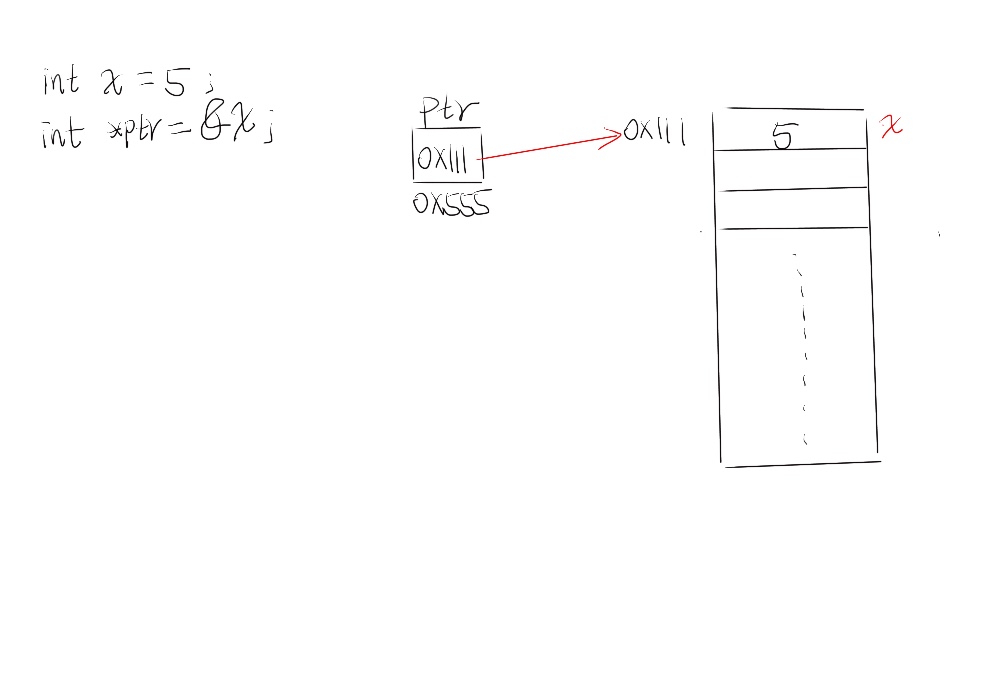 int x = 5 ;
int *ptr = &x ;
ptr
0x111
0x555
0x111
5
x